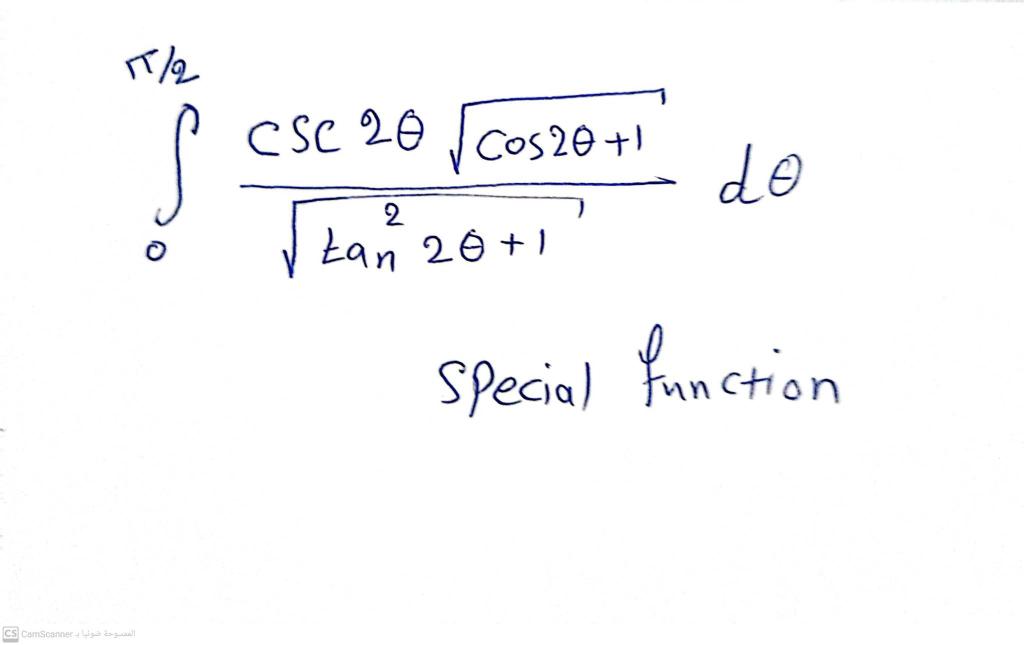 π/2
∫ csc 2θ √cos2θ+1 dθ
0 √tan² 2θ+1
Special function
CS CamScanner الممسوحة ضوئيا بـ